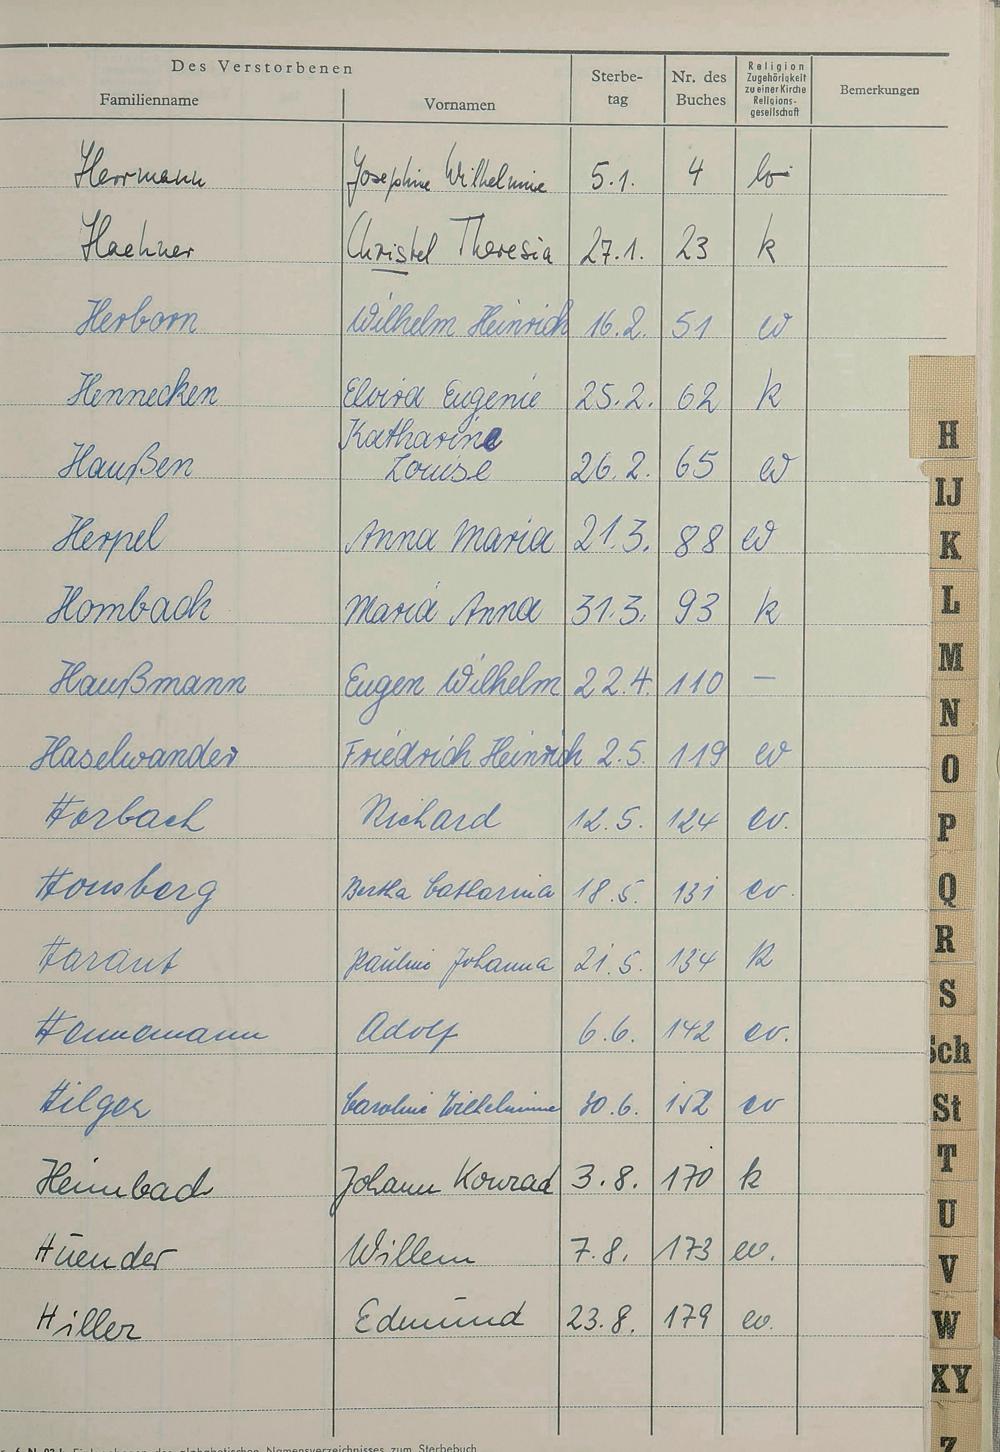 Des Verstorbenen
Familienname Vornamen Sterbe-tag Nr. des Buches Religion Zugehörigkeit zu einer Kirche Religions-gesellschaft Bemerkungen
Herrmann Josephine Wilhelmine 5.1. 4
Haehner Christel Theresia 27.1. 23 k
Herborn Wilhelm Heinrich 16.2. 51 ev
Hennecken Elvira Eugenie 25.2. 62 k
Katharine
Haußen Louise 26.2. 65 ev
Herpel Anna Maria 21.3. 88 ev
Hombach Maria Anna 31.3. 93 k
Haußmann Eugen Wilhelm 22.4. 110 –
Haselwander Friedrich Heinrich 2.5. 119 ev
Horbach Richard 12.5. 124 ev.
Honsberg Bertha Catharina 18.5. 131 ev.
Harant Pauline Johanna 21.5. 134 k
Hannemann Adolf 6.6. 142 ev.
Hilger Caroline Wilhelmine 30.6. 152 ev
Heimbach Johann Konrad 3.8. 170 k
Hüender Willem 7.8. 173 ev.
Hiller Edmund 23.8. 179 ev.
H
IJ
K
L
M
N
O
P
Q
R
S
Sch
St
T
U
V
W
XY
Z
des alphabetischen Namensverzeichnisses zum Sterbebuch